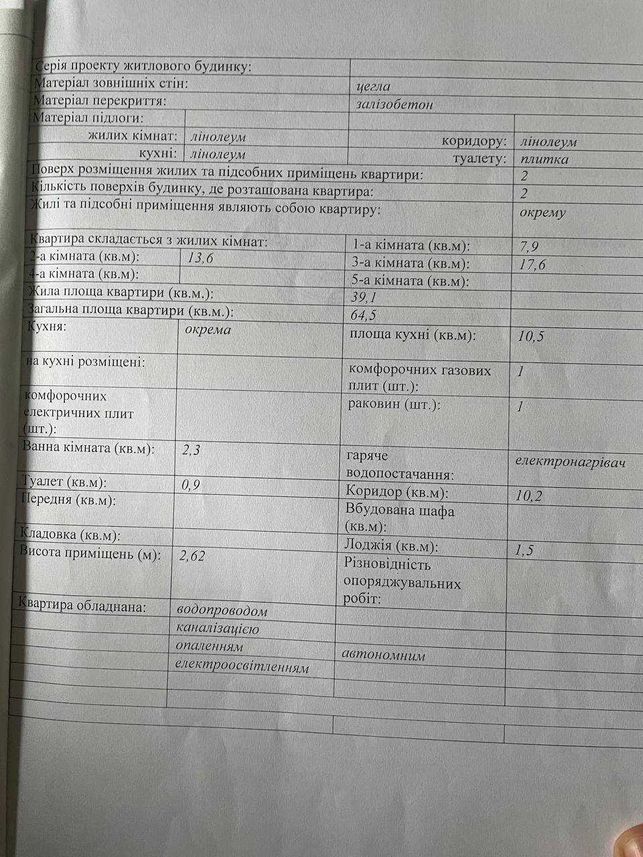 Серія проекту житлового будинку:
Матеріал зовнішніх стін: цегла
Матеріал перекриття: залізобетон
Матеріал підлоги:
жилих кімнат: лінолеум коридору: лінолеум
кухні: лінолеум туалету: плитка
Поверх розміщення жилих та підсобних приміщень квартири: 2
Кількість поверхів будинку, де розташована квартира: 2
Жилі та підсобні приміщення являють собою квартиру: окрему
Квартира складається з жилих кімнат: 1-а кімната (кв.м): 7,9
2-а кімната (кв.м): 13,6 3-а кімната (кв.м): 17,6
4-а кімната (кв.м): 5-а кімната (кв.м):
Жила площа квартири (кв.м.): 39,1
Загальна площа квартири (кв.м.): 64,5
Кухня: окрема площа кухні (кв.м): 10,5
на кухні розміщені: комфорочних газових
плит (шт.): 1
комфорочних
електричних плит
(шт.):
раковин (шт.): 1
Ванна кімната (кв.м): 2,3 гаряче
водопостачання: електронагрівач
Туалет (кв.м): 0,9 Коридор (кв.м): 10,2
Передня (кв.м): Вбудована шафа
(кв.м):
Кладовка (кв.м): Лоджія (кв.м): 1,5
Висота приміщень (м): 2,62 Різновідність
опоряджувальних
робіт:
Квартира обладнана: водопроводом
каналізацією
опаленням автономним
електроосвітленням